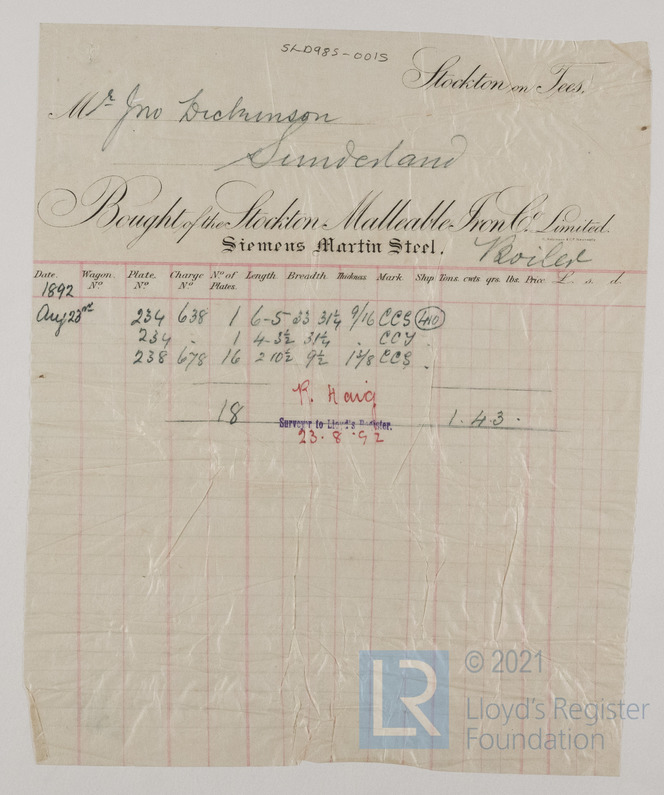 SLD985-0015
Stockton on Tees.
Mr Jno Dickinson
Sunderland
Bought of the Stockton Malleable Iron Co. Limited.
Siemens Martin Steel. Boiler
Date. Wagon No. Plate No. Charge No. No. of Plates. Length. Breadth. Thickness Mark. Ship Tons. cwts qrs. lbs. Price £. s. d.
1892
Aug 23rd 234 638 1 6-5 33 31¼ 9/16 CCS 410
234 . 1 4-3½ 31¼ .
238 678 16 2 10½ 9½ 1 3/8 CCS .
R. Haig
18 1. 4. 3.
Surveyor to Lloyd's Register.
23.8.92
LR © 2021
Lloyd's Register
Foundation